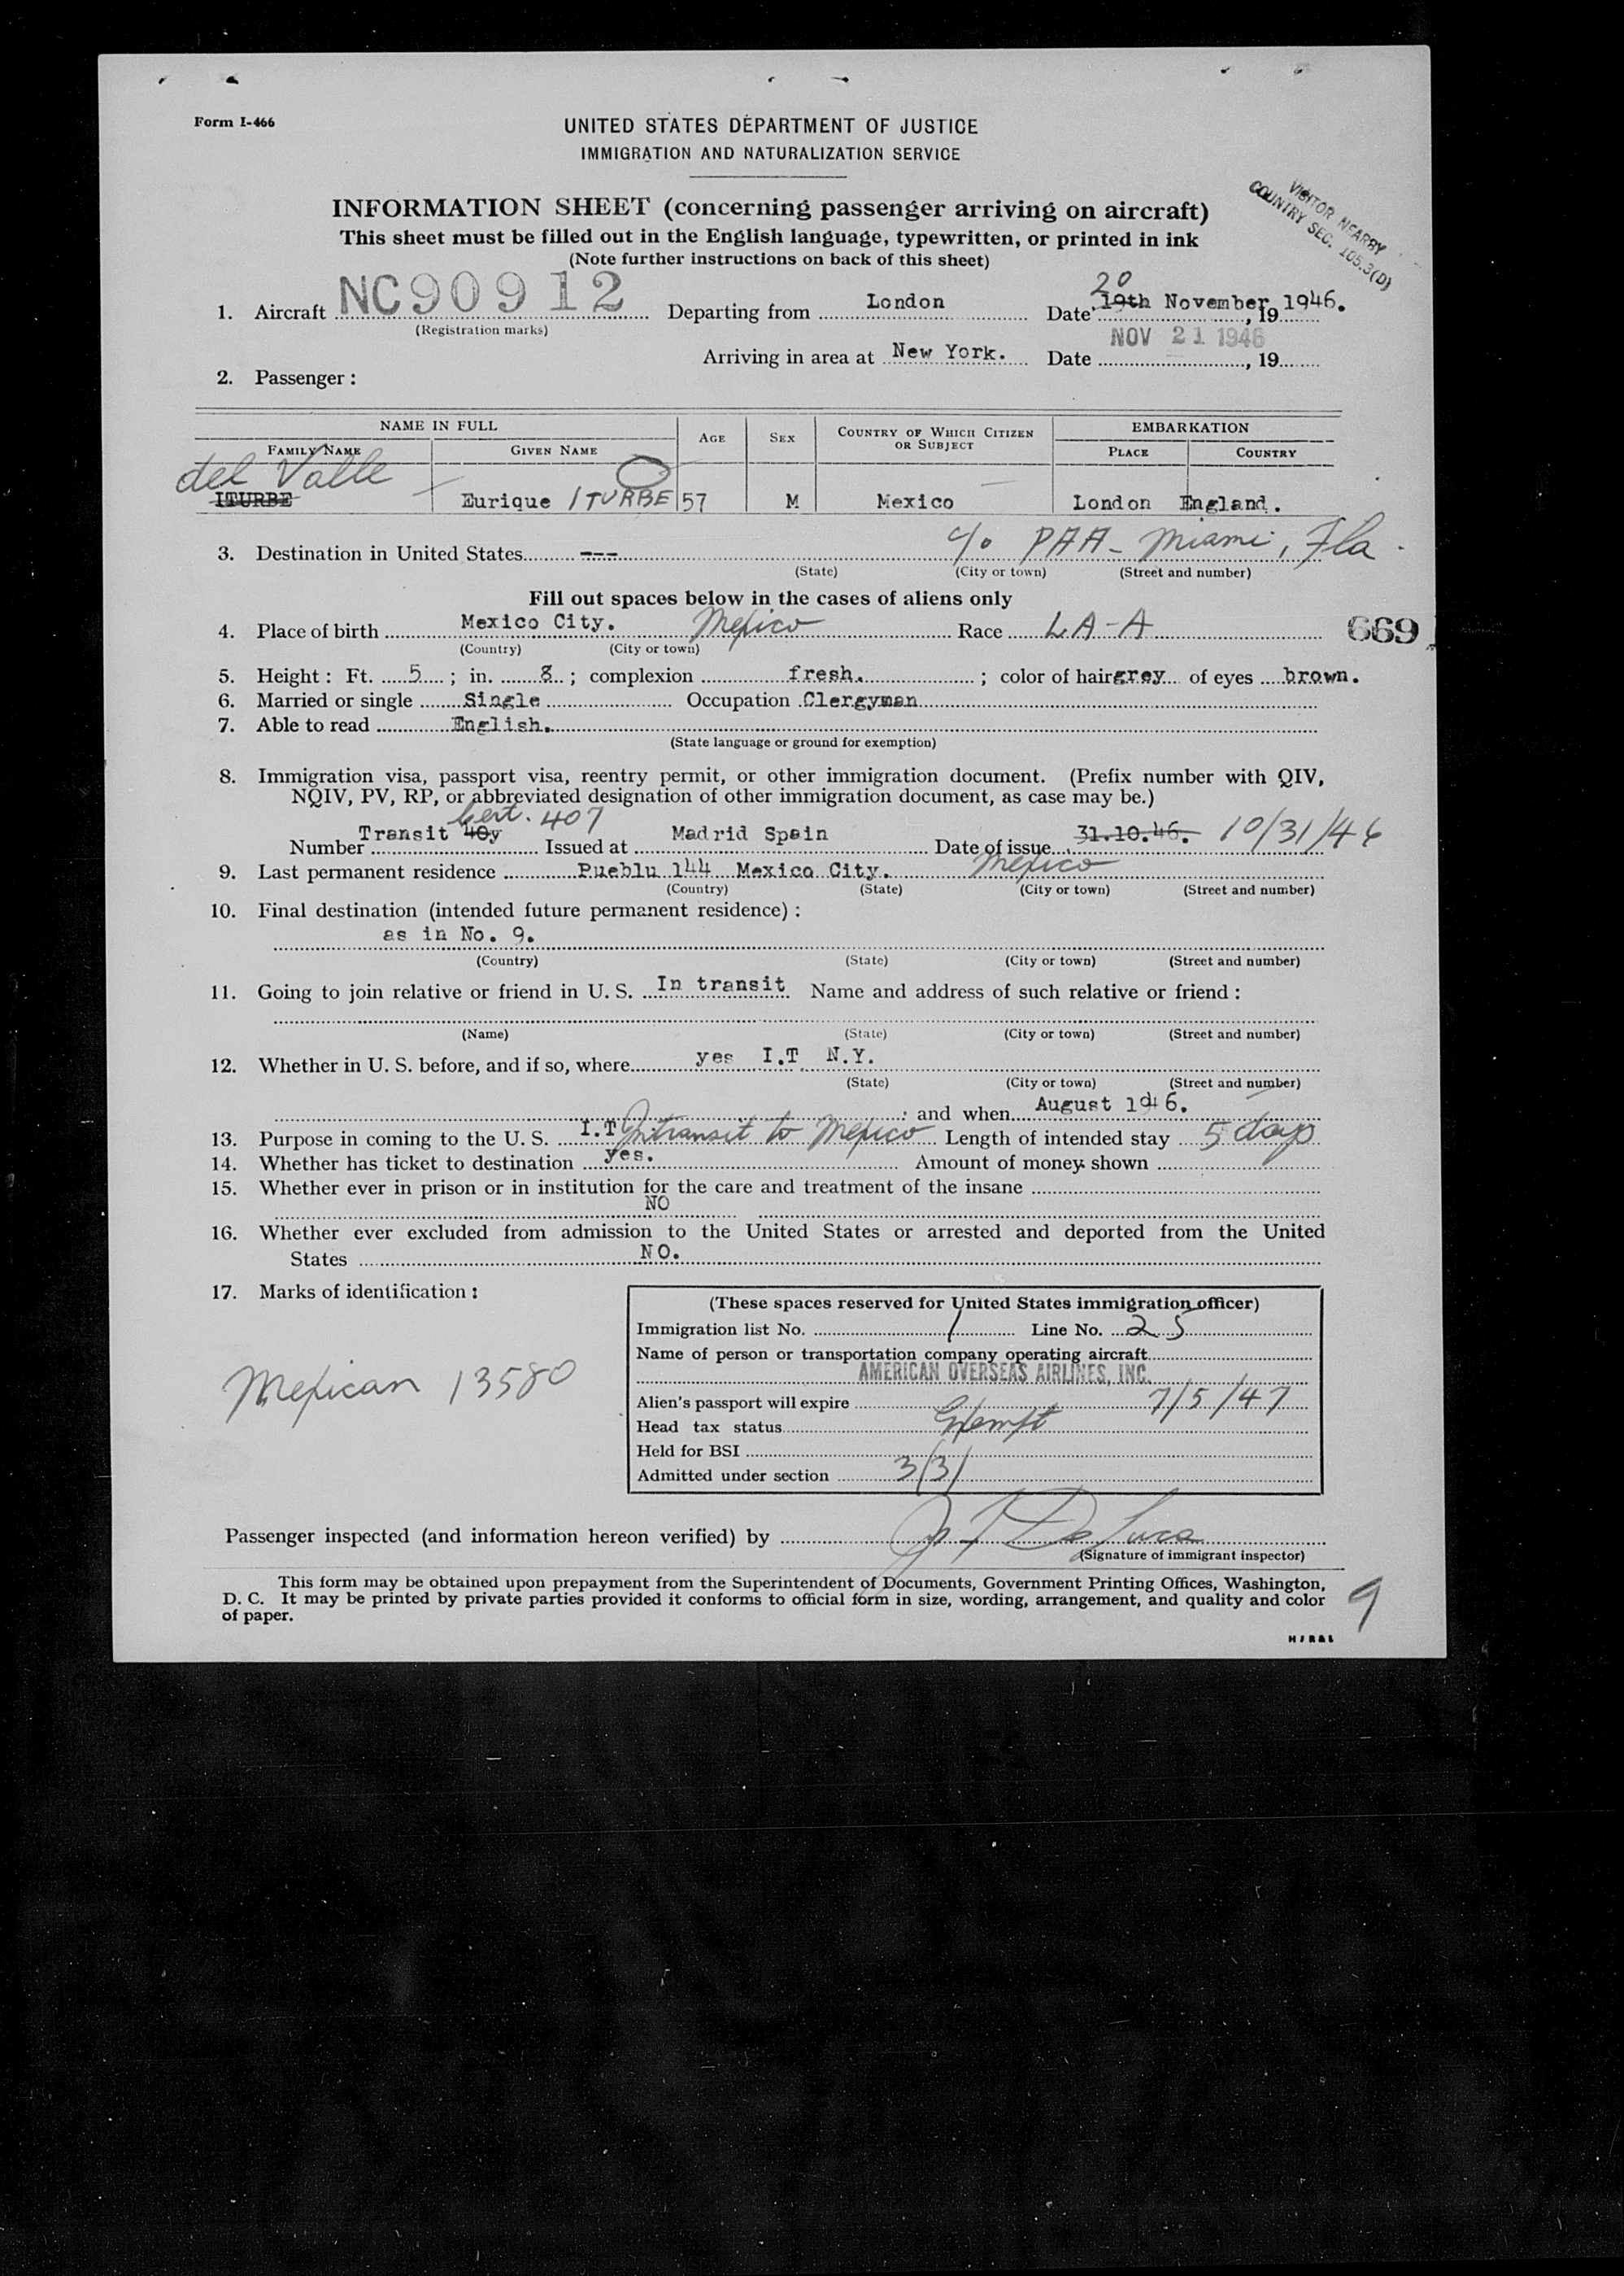 Form I-466
UNITED STATES DEPARTMENT OF JUSTICE
IMMIGRATION AND NATURALIZATION SERVICE
INFORMATION SHEET (concerning passenger arriving on aircraft)
This sheet must be filled out in the English language, typewritten, or printed in ink
(Note further instructions on back of this sheet)
VISITOR NEARBY
COUNTRY SEC. 105.3(D)
20
1. Aircraft NC90912 Departing from London Date 19th November, 1946. , 19
(Registration marks)
NOV 21 1946
Arriving in area at New York. Date , 19
2. Passenger:
NAME IN FULL AGE SEX COUNTRY OF WHICH CITIZEN OR SUBJECT EMBARKATION
FAMILY NAME GIVEN NAME PLACE COUNTRY
del Valle
ITURBE Eurique ITURBE 57 M Mexico London England.
3. Destination in United States --- c/o PAA - Miami, Fla.
(State) (City or town) (Street and number)
Fill out spaces below in the cases of aliens only
4. Place of birth Mexico City. Mexico Race LA-A 669
(Country) (City or town)
5. Height: Ft. 5 ; in. 8 ; complexion fresh. ; color of hair grey of eyes brown.
6. Married or single Single Occupation Clergyman
7. Able to read English.
(State language or ground for exemption)
8. Immigration visa, passport visa, reentry permit, or other immigration document. (Prefix number with QIV,
NQIV, PV, RP, or abbreviated designation of other immigration document, as case may be.)
Cert. 407
Number Transit 40y Issued at Madrid Spain Date of issue 31.10.46. 10/31/46
9. Last permanent residence Pueblu 144 Mexico City. Mexico
(Country) (State) (City or town) (Street and number)
10. Final destination (intended future permanent residence):
as in No. 9.
(Country) (State) (City or town) (Street and number)
11. Going to join relative or friend in U. S. In transit Name and address of such relative or friend:
(Name) (State) (City or town) (Street and number)
12. Whether in U. S. before, and if so, where yes I.T N.Y.
(State) (City or town) (Street and number)
; and when August 1946.
13. Purpose in coming to the U. S. I.T Intransit to Mexico Length of intended stay 5 days
14. Whether has ticket to destination yes. Amount of money shown
15. Whether ever in prison or in institution for the care and treatment of the insane
NO
16. Whether ever excluded from admission to the United States or arrested and deported from the United
States NO.
17. Marks of identification:
Mexican 13580
(These spaces reserved for United States immigration officer)
Immigration list No. 1 Line No. 25
Name of person or transportation company operating aircraft
AMERICAN OVERSEAS AIRLINES, INC.
Alien's passport will expire 7/5/47
Head tax status Exempt
Held for BSI
Admitted under section 3/3/
Passenger inspected (and information hereon verified) by J. T. De Luca
(Signature of immigrant inspector)
This form may be obtained upon prepayment from the Superintendent of Documents, Government Printing Offices, Washington,
D. C. It may be printed by private parties provided it conforms to official form in size, wording, arrangement, and quality and color
of paper.
9